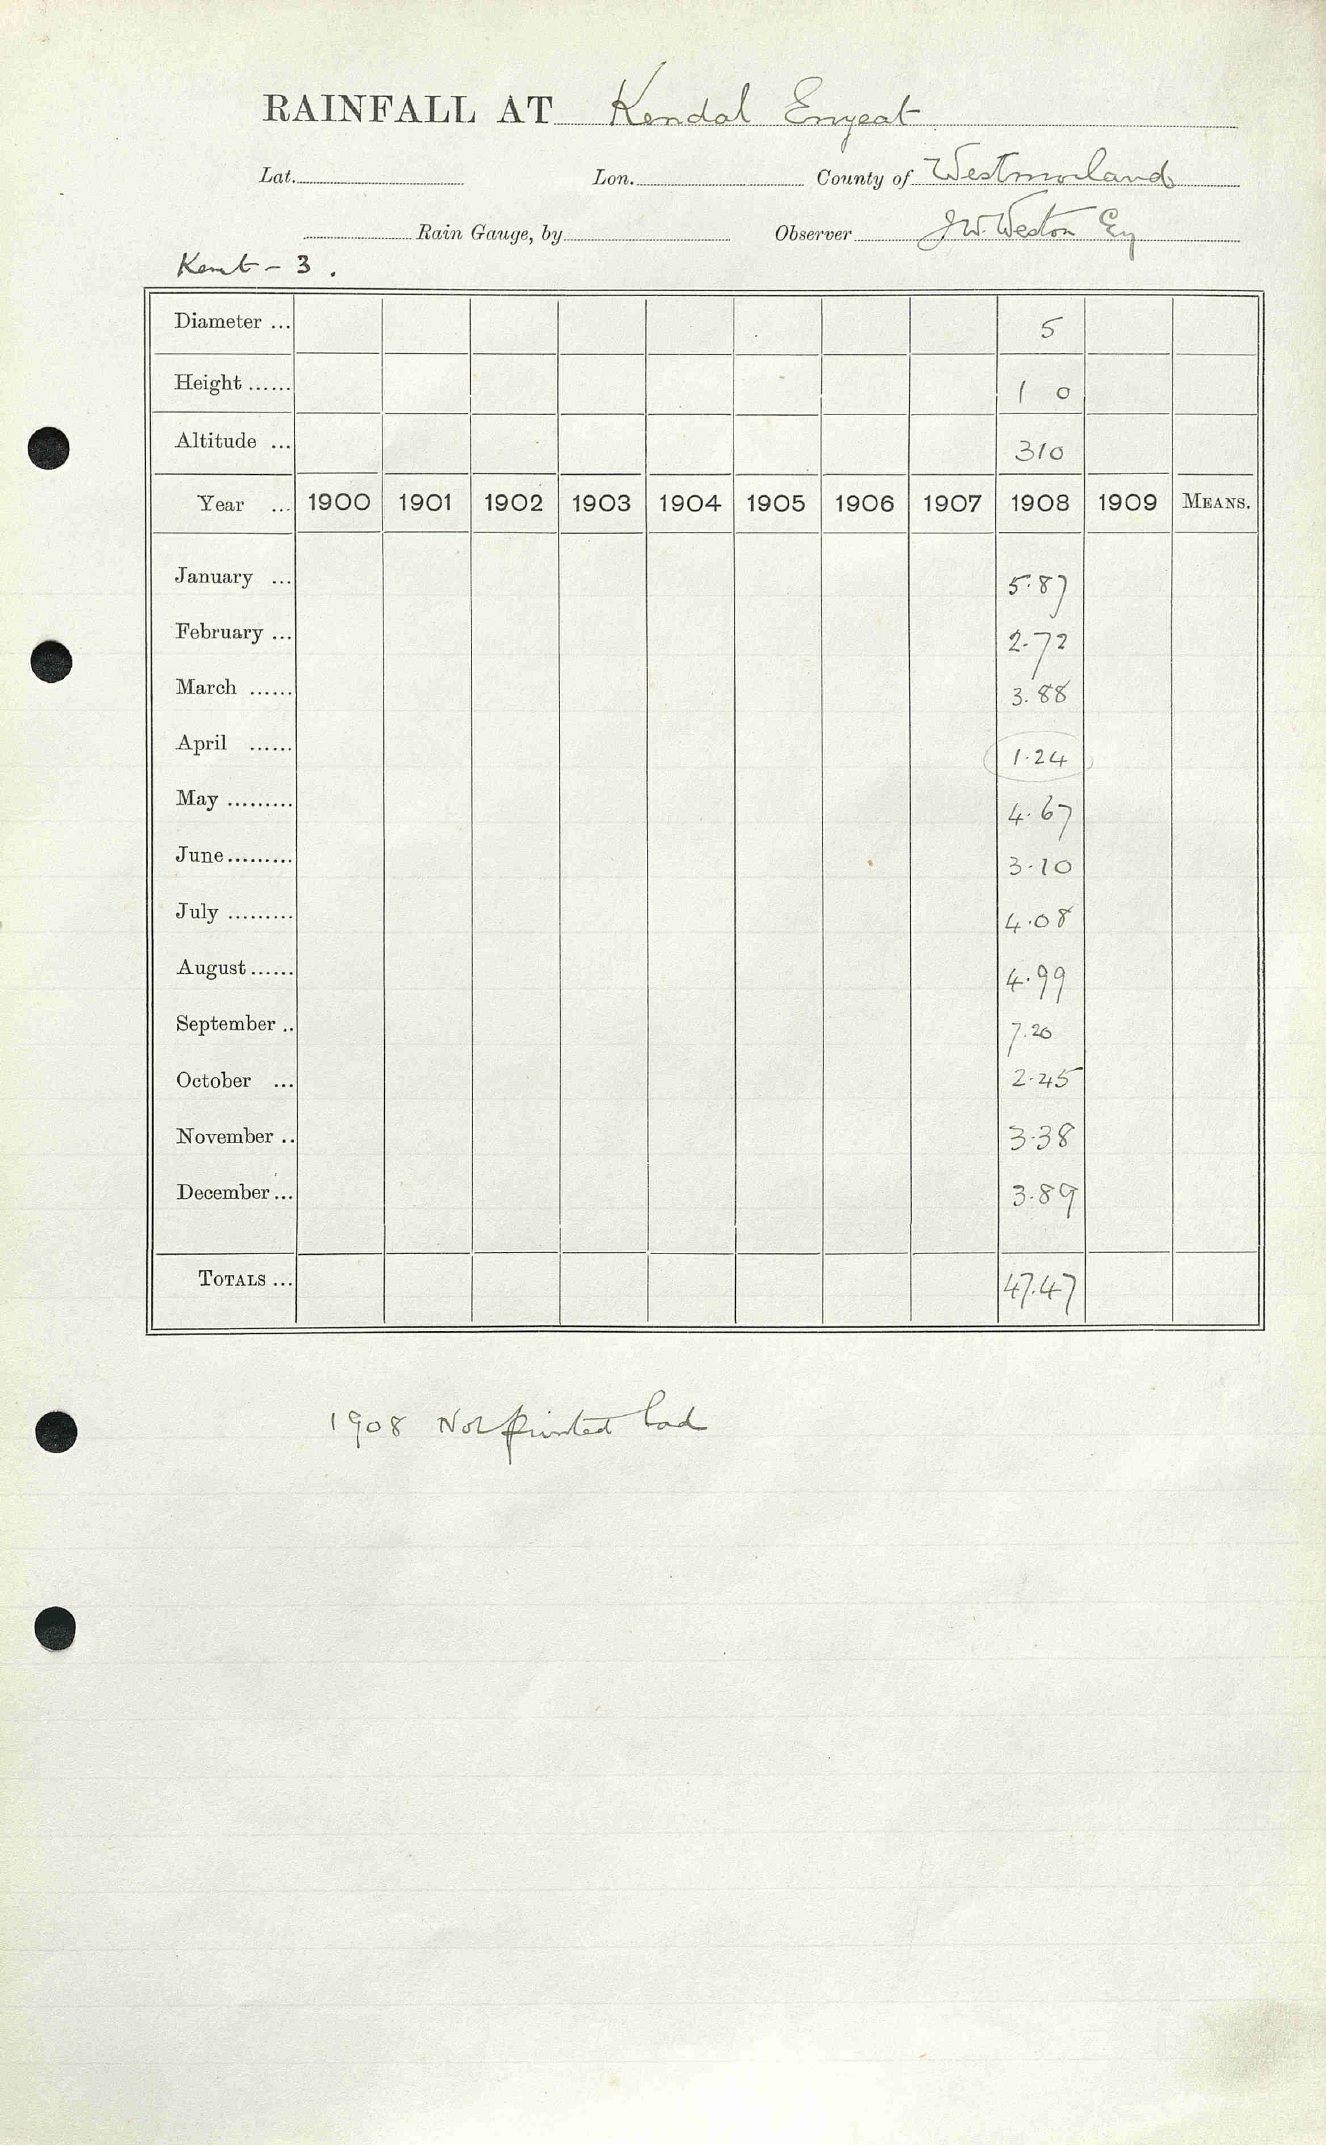 RAINFALL AT Kendal Enyeat
Lat. Lon. County of Westmorland
Rain Gauge, by Observer J.W. Weston Esq
Kent - 3.
Diameter ... 5
Height ...... 1 0
Altitude ... 310
Year ... 1900 1901 1902 1903 1904 1905 1906 1907 1908 1909 MEANS.
January ... 5.87
February ... 2.72
March ...... 3.88
April ...... 1.24
May ......... 4.67
June ......... 3.10
July ......... 4.08
August ...... 4.99
September .. 7.20
October ... 2.45
November .. 3.38
December ... 3.89
TOTALS ... 47.47
1908 Not printed bad